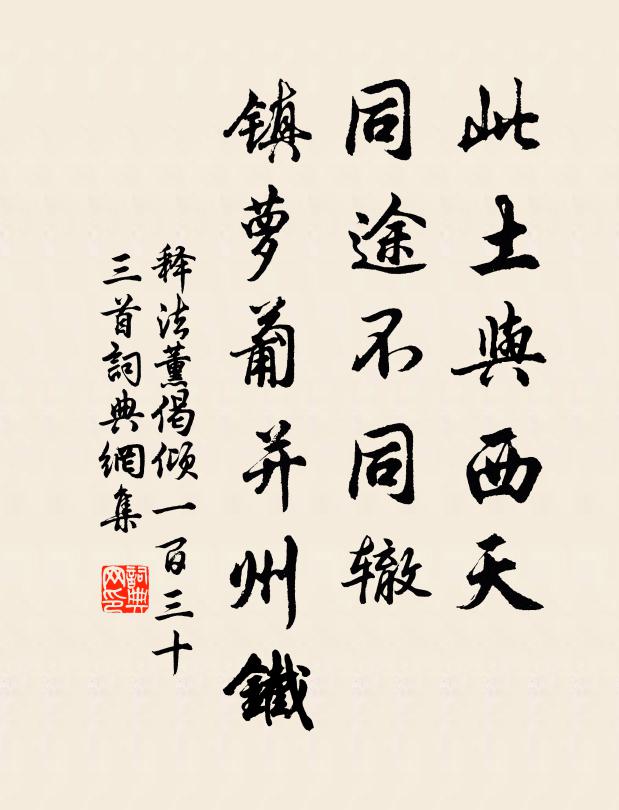 此土與西天
同途不同辙
镇萝蔔并州鐵
释法薰偈倾一百三十
三首詞典網集
詞典
网印